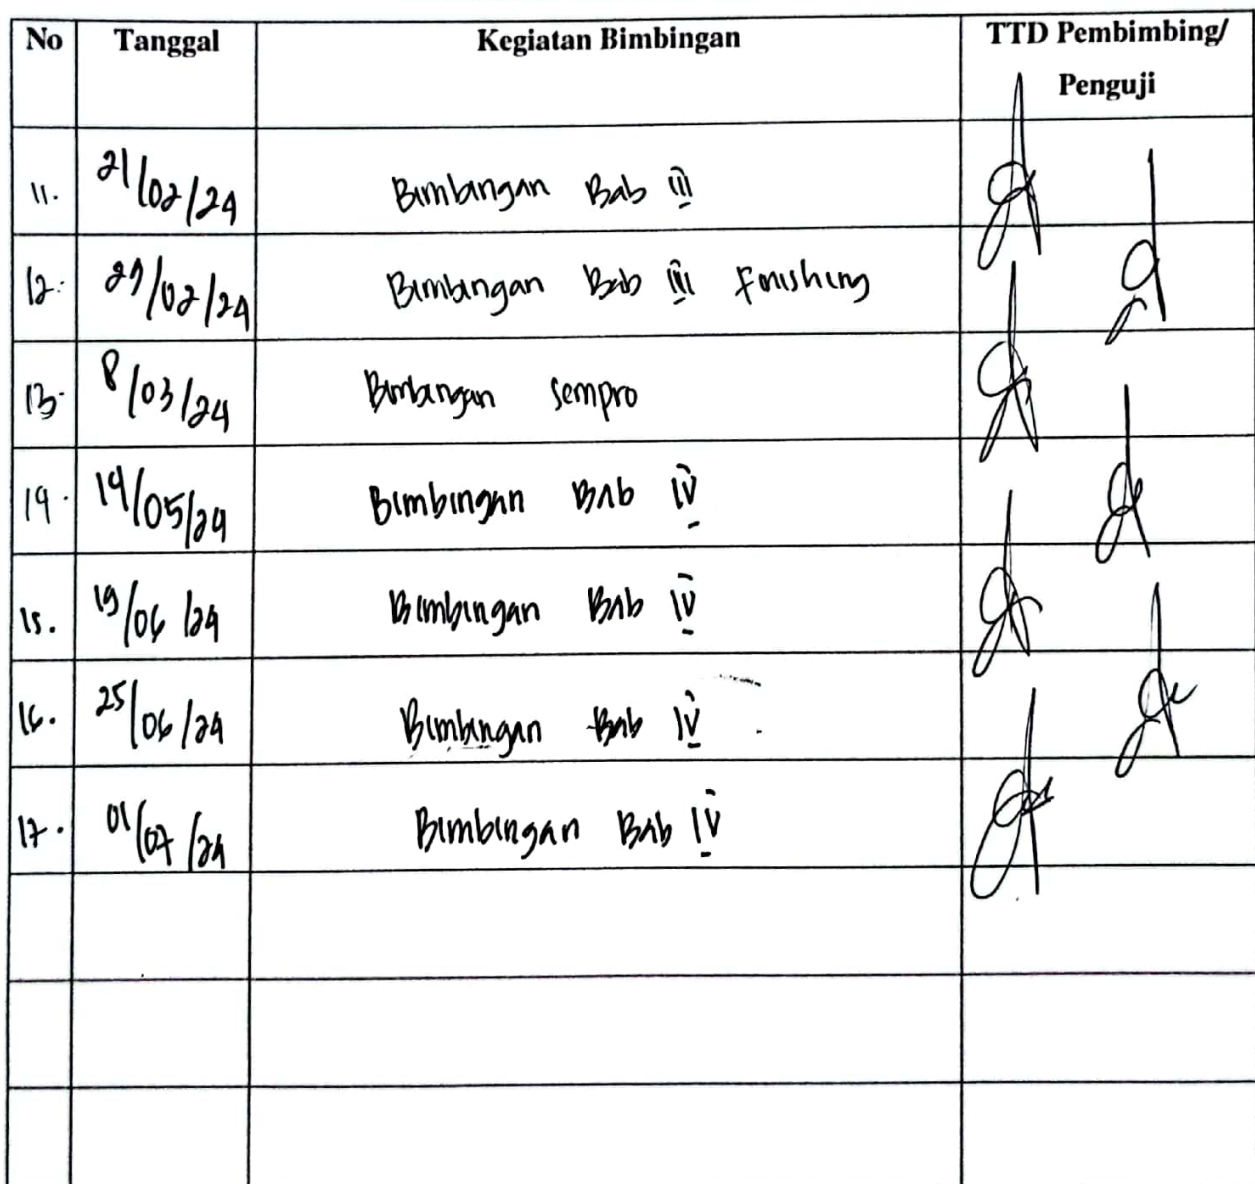 No Tanggal Kegiatan Bimbingan TTD Pembimbing/
Penguji
11. 21/02/24 Bimbingan Bab III
12. 27/02/24 Bimbingan Bab III Finishing
13. 8/03/24 Bimbingan Sempro
14. 14/05/24 Bimbingan Bab IV
15. 19/06/24 Bimbingan Bab IV
16. 25/06/24 Bimbingan Bab IV
17. 01/07/24 Bimbingan Bab IV